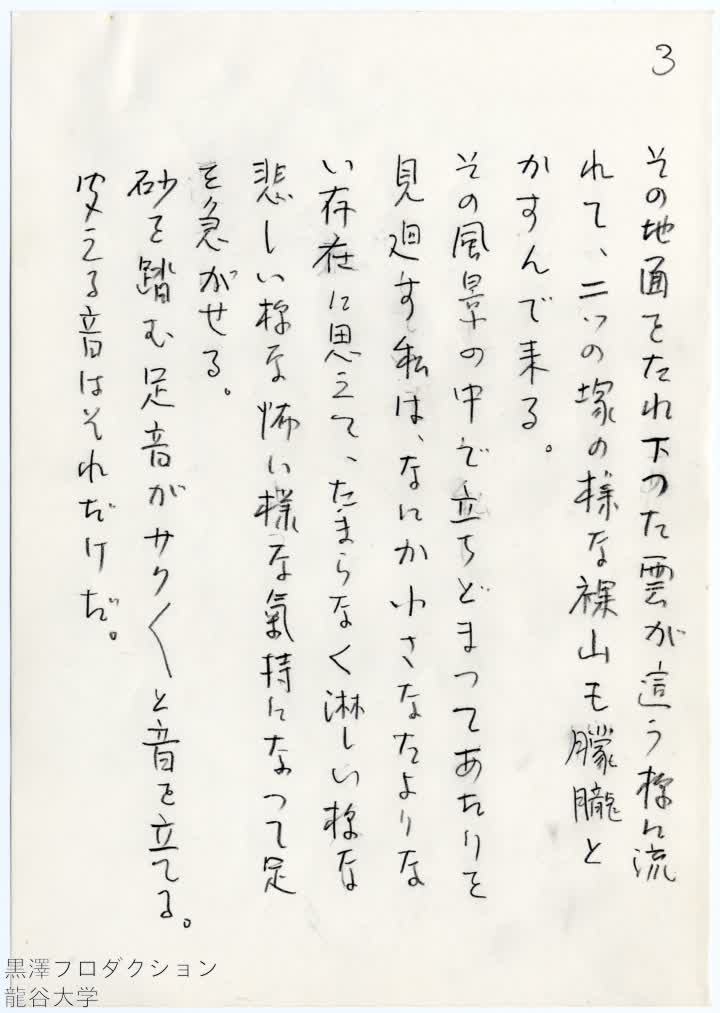 3
その地面をたれ下つた雲が這う様に流
れて、二つの塚の様な裸山も朦朧と
かすんで来る。
その風景の中で立ちどまつてあたりを
見廻す私は、なにか小さなたよりな
い存在に思えて、たまらなく淋しい様な
悲しい様な怖い様な氣持になつて足
を急がせる。
砂を踏む足音がサク〱と音を立てる。
聞える音はそれだけだ。
黒澤プロダクション
龍谷大学